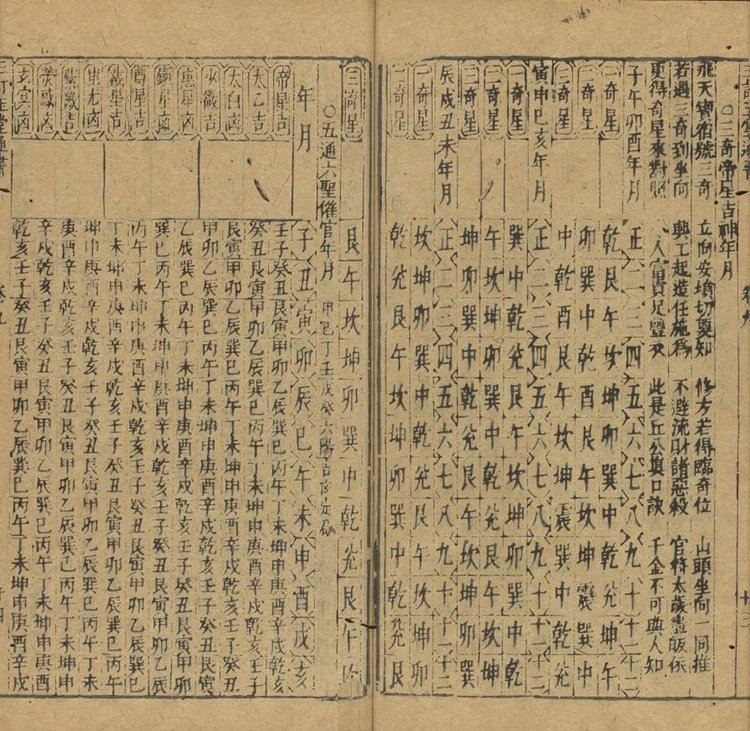 ○三奇帝星吉神年月
飛天寶宿號三奇 立向安墳切要知 修方若得臨奇位 山頭坐向一同推
若遇一奇到坐向 興工起造任施為 不避流財諸惡殺 官符太歲盡皈依
更得奇星來對照 人富足豐衣 此是丘公真口訣 千金不可與人知
子午卯酉年月 正二三四五六七八九十十一十二
三奇星 午
三奇星 卯巽中乾兌艮午坎坤卯巽中
三奇星 中乾兌艮午坎坤卯巽中乾兌
寅申巳亥年月 正二三四五六七八九十十一十二
三奇星 巽中乾兌艮午坎坤卯巽中乾
三奇星 午坎坤卯巽中乾兌艮午坎坤
三奇星
辰戌丑未年月 正二三四五六七八九十十一十二
三奇星 坎坤卯巽中乾兌艮午坎坤卯
三奇星 乾兌艮午坎坤卯巽中乾兌艮
三奇星 艮午坎坤卯巽中乾兌艮午坎
○五通六聖催官年月
年月 子丑寅卯辰巳午未申酉戌亥
帝星吉 壬子癸丑艮寅甲卯乙辰巽巳丙午丁未坤申庚酉辛戌乾亥
太乙吉 癸丑艮寅甲卯乙辰巽巳丙午丁未坤申庚酉辛戌乾亥壬子
太白凶 艮寅甲卯乙辰巽巳丙午丁未坤申庚酉辛戌乾亥壬子癸丑
甲卯乙辰巽巳丙午丁未坤申庚酉辛戌乾亥壬子癸丑艮寅
乙辰巽巳丙午丁未坤申庚酉辛戌乾亥壬子癸丑艮寅甲卯
巽巳丙午丁未坤申庚酉辛戌乾亥壬子癸丑艮寅甲卯乙辰
尊星吉 丙午丁未坤申庚酉辛戌乾亥壬子癸丑艮寅甲卯乙辰巽巳
丁未坤申庚酉辛戌乾亥壬子癸丑艮寅甲卯乙辰巽巳丙午
坤申庚酉辛戌乾亥壬子癸丑艮寅甲卯乙辰巽巳丙午丁未
庚酉辛戌乾亥壬子癸丑艮寅甲卯乙辰巽巳丙午丁未坤申
辛戌乾亥壬子癸丑艮寅甲卯乙辰巽巳丙午丁未坤申庚酉
乾亥壬子癸丑艮寅甲卯乙辰巽巳丙午丁未坤申庚酉辛戌